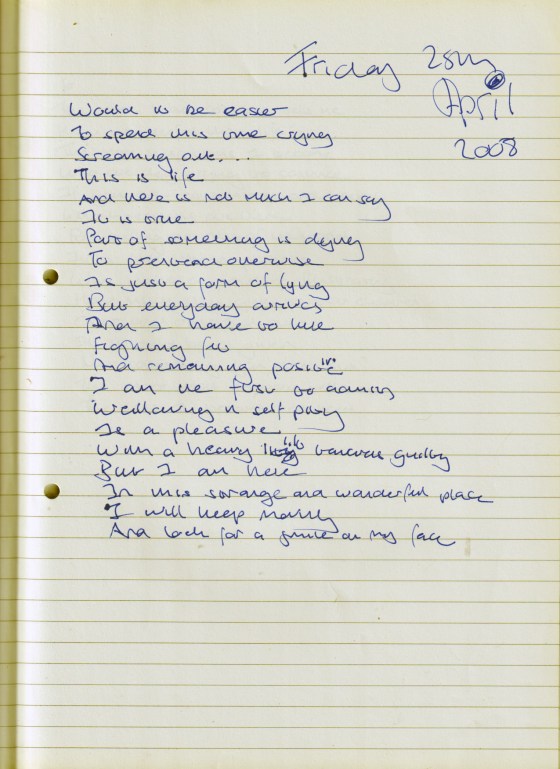 Friday 25th
April
2008
Would it be easier
To spend this time crying
Screaming out...
This is life
And there is not much I can say
It is true
Part of something is dying
To pretend otherwise
Is just a form of lying
But everyday arrives
And I have to live
Fighting for
And remaining positive
I am the first to admit
Wallowing in self pity
Is a pleasure
With a heavy guilty
But I am here
In this strange and wonderful place
I will keep moving
And look for a smile on my face